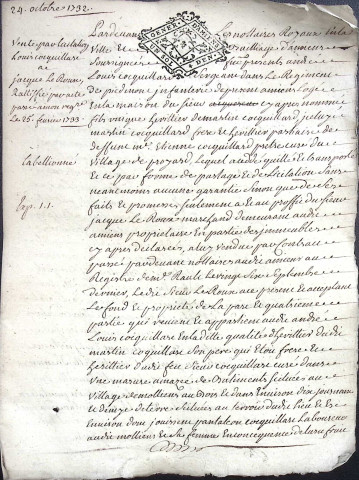 24. octobre 1732.
Vente par licitation
Louis cocquillart
a
jacque Le Roux,
Ratiffié par acte
25. fevrier 1733.
Pardevant les nottaires Royaux en la
Ville et Bailliage d'amiens
Soussignés fut present andré
Louis cocquillart sergeant dans Le Regiment
de piedmont jnfanterie de present amiens Logé
En la maison du sieur cy apres nommé
fils unique heritier de martin cocquillart jceluy
martin cocquillart frere et heritier
deffunt mre Etienne cocquillart pretre curé du
Village de proyard Lequel a ceddé quitté et transporté
et ce par forme de partage et de licitation Sans
neanmoins aucune garantie Sinon que de ses
faits et promesses seulement a et au proffit du sieur
jacque Le Roux marchand demeurant audit
amiens proprietaire En partie des jmmeubles
cy apres declarés, a luy vendus par Contract
passé pardevant nottaires audit amiens au
Registre de me Rault Le vingt six septembre
dernier, Ledit sieur Le Roux a ce present et acceptant
Le fond et proprieté de La part et quatrieme
partie qui revient et appartient audit andré
Louis cocquillart En la ditte qualité d'heritier dudit
martin cocquillart son pere qui Etoit frere et
heritier dudit feu sieur cocquillart curé dans
Une mazure amazée de Batiments scituée au
Village de molliens au Bois et dans Environ dix journaux
et demy de terre scituées au terroir dudit Lieu et Es
Environs dont jouissent pantaleon cocquillart Laboureur
audit molliens et sa femme En consequence de leur